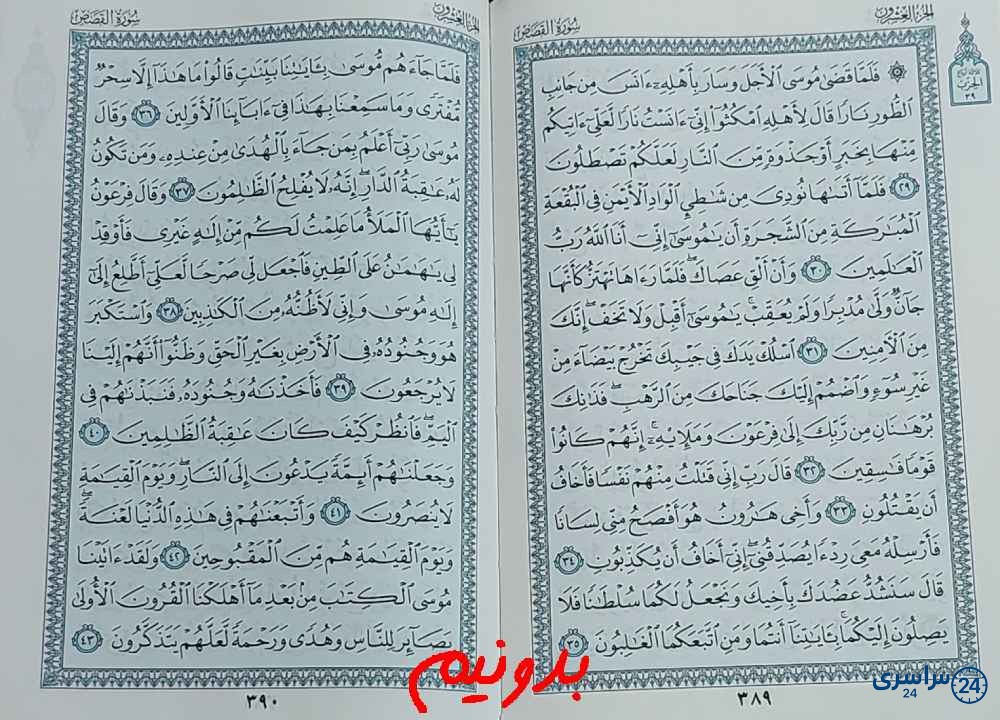 الجزء العشرون
سورة القصص
فَلَمَّا قَضَىٰ مُوسَى ٱلْأَجَلَ وَسَارَ بِأَهْلِهِۦٓ ءَانَسَ مِن جَانِبِ
ٱلطُّورِ نَارًا قَالَ لِأَهْلِهِ ٱمْكُثُوٓا۟ إِنِّىٓ ءَانَسْتُ نَارًا لَّعَلِّىٓ ءَاتِيكُم
مِّنْهَا بِخَبَرٍ أَوْ جَذْوَةٍ مِّنَ ٱلنَّارِ لَعَلَّكُمْ تَصْطَلُونَ
٢٩ فَلَمَّآ أَتَىٰهَا نُودِىَ مِن شَٰطِئِ ٱلْوَادِ ٱلْأَيْمَنِ فِى ٱلْبُقْعَةِ
ٱلْمُبَٰرَكَةِ مِنَ ٱلشَّجَرَةِ أَن يَٰمُوسَىٰٓ إِنِّىٓ أَنَا ٱللَّهُ رَبُّ
ٱلْعَٰلَمِينَ ٣٠ وَأَنْ أَلْقِ عَصَاكَ ۖ فَلَمَّا رَءَاهَا تَهْتَزُّ كَأَنَّهَا
جَآنٌّ وَلَّىٰ مُدْبِرًا وَلَمْ يُعَقِّبْ ۚ يَٰمُوسَىٰٓ أَقْبِلْ وَلَا تَخَفْ ۖ إِنَّكَ
مِنَ ٱلْءَامِنِينَ ٣١ ٱسْلُكْ يَدَكَ فِى جَيْبِكَ تَخْرُجْ بَيْضَآءَ مِنْ
غَيْرِ سُوٓءٍ وَٱضْمُمْ إِلَيْكَ جَنَاحَكَ مِنَ ٱلرَّهْبِ ۖ فَذَٰنِكَ
بُرْهَٰنَانِ مِن رَّبِّكَ إِلَىٰ فِرْعَوْنَ وَمَلَإِي۟هِۦٓ ۚ إِنَّهُمْ كَانُوا۟
قَوْمًا فَٰسِقِينَ ٣٢ قَالَ رَبِّ إِنِّى قَتَلْتُ مِنْهُمْ نَفْسًا فَأَخَافُ
أَن يَقْتُلُونِ ٣٣ وَأَخِى هَٰرُونُ هُوَ أَفْصَحُ مِنِّى لِسَانًا
فَأَرْسِلْهُ مَعِىَ رِدْءًا يُصَدِّقُنِىٓ ۖ إِنِّىٓ أَخَافُ أَن يُكَذِّبُونِ ٣٤
قَالَ سَنَشُدُّ عَضُدَكَ بِأَخِيكَ وَنَجْعَلُ لَكُمَا سُلْطَٰنًا فَلَا
يَصِلُونَ إِلَيْكُمَا ۚ بِـَٔايَٰتِنَآ أَنتُمَا وَمَنِ ٱتَّبَعَكُمَا ٱلْغَٰلِبُونَ ٣٥
٣٨٩
الحزب
٣٩
الجزء العشرون
سورة القصص
فَلَمَّا جَآءَهُم مُّوسَىٰ بِـَٔايَٰتِنَا بَيِّنَٰتٍ قَالُوا۟ مَا هَٰذَآ إِلَّا سِحْرٌ
مُّفْتَرًى وَمَا سَمِعْنَا بِهَٰذَا فِىٓ ءَابَآئِنَا ٱلْأَوَّلِينَ ٣٦ وَقَالَ
مُوسَىٰ رَبِّىٓ أَعْلَمُ بِمَن جَآءَ بِٱلْهُدَىٰ مِنْ عِندِهِۦ وَمَن تَكُونُ
لَهُۥ عَٰقِبَةُ ٱلدَّارِ ۖ إِنَّهُۥ لَا يُفْلِحُ ٱلظَّٰلِمُونَ ٣٧ وَقَالَ فِرْعَوْنُ
يَٰٓأَيُّهَا ٱلْمَلَأُ مَا عَلِمْتُ لَكُم مِّنْ إِلَٰهٍ غَيْرِى فَأَوْقِدْ
لِى يَٰهَٰمَٰنُ عَلَى ٱلطِّينِ فَٱجْعَل لِّى صَرْحًا لَّعَلِّىٓ أَطَّلِعُ إِلَىٰٓ
إِلَٰهِ مُوسَىٰ وَإِنِّى لَأَظُنُّهُۥ مِنَ ٱلْكَٰذِبِينَ ٣٨ وَٱسْتَكْبَرَ
هُوَ وَجُنُودُهُۥ فِى ٱلْأَرْضِ بِغَيْرِ ٱلْحَقِّ وَظَنُّوٓا۟ أَنَّهُمْ إِلَيْنَا
لَا يُرْجَعُونَ ٣٩ فَأَخَذْنَٰهُ وَجُنُودَهُۥ فَنَبَذْنَٰهُمْ فِى
ٱلْيَمِّ ۖ فَٱنظُرْ كَيْفَ كَانَ عَٰقِبَةُ ٱلظَّٰلِمِينَ ٤٠
وَجَعَلْنَٰهُمْ أَئِمَّةً يَدْعُونَ إِلَى ٱلنَّارِ ۖ وَيَوْمَ ٱلْقِيَٰمَةِ
لَا يُنصَرُونَ ٤١ وَأَتْبَعْنَٰهُمْ فِى هَٰذِهِ ٱلدُّنْيَا لَعْنَةً ۖ
وَيَوْمَ ٱلْقِيَٰمَةِ هُم مِّنَ ٱلْمَقْبُوحِينَ ٤٢ وَلَقَدْ ءَاتَيْنَا
مُوسَى ٱلْكِتَٰبَ مِنۢ بَعْدِ مَآ أَهْلَكْنَا ٱلْقُرُونَ ٱلْأُولَىٰ
بَصَآئِرَ لِلنَّاسِ وَهُدًى وَرَحْمَةً لَّعَلَّهُمْ يَتَذَكَّرُونَ ٤٣
٣٩٠
بدونیم
سراسری 24
24